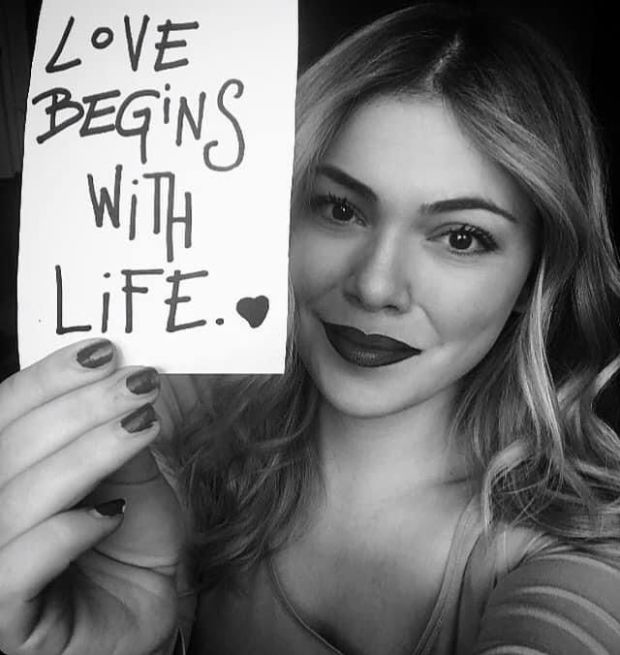 LOVE
BEGiNS
WiTH
LiFE.♥